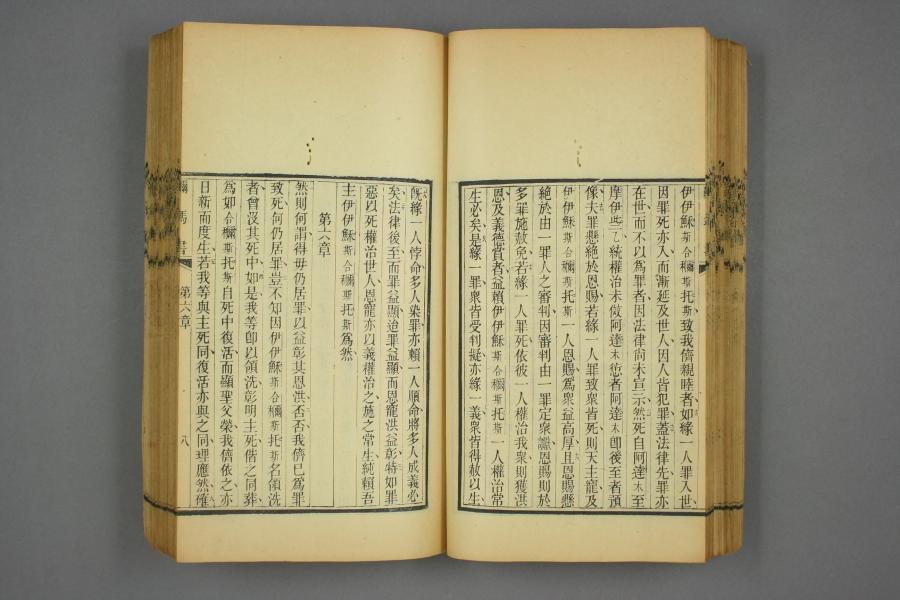 伊伊穌斯合穪斯托斯致我儕親睦者如緣一人罪入世
因罪死亦入而漸延及世人因人皆犯罪蓋法律先罪亦
在世而不以為罪者因法律尚未宣示然死自阿達木至
摩伊些乙統權治未倣阿達木愆者阿達木卽後至者預
像夫罪懸絶於恩賜若緣一人罪致衆皆死則天主寵及
伊伊穌斯合穪斯托斯一人恩賜為衆益高厚且恩賜懸
絶於由一罪人之審判因審判由一罪定衆讞恩賜則於
多罪施赦免若緣一人罪死依彼一人權治我衆則獲洪
恩及義德賀者益賴伊伊穌斯合穪斯托斯一人權治常
生必矣是緣一罪衆皆受判擬亦緣一義衆皆得赦以生
旣緣一人悖命多人染罪亦賴一人順命將多人成義必
矣法律後至而罪益顯迨罪益顯而恩寵洪益彰特如罪
惡以死權治世人恩寵亦以義權治之施之常生純賴吾
主伊伊穌斯合穪斯托斯為然
第六章
然則何謂得毋仍居罪以益彰其恩洪否否我儕已為罪
致死何仍居罪豈不知因伊伊穌斯合穪斯托斯名領洗
者曾沒其死中如是我等卽以領洗彰明主死偕之同葬
為如合穪斯托斯自死中復活而顯聖父榮我儕依之亦
日新而度生若我等與主死同復活亦與之同理應然確
羅馬書 第六章 八